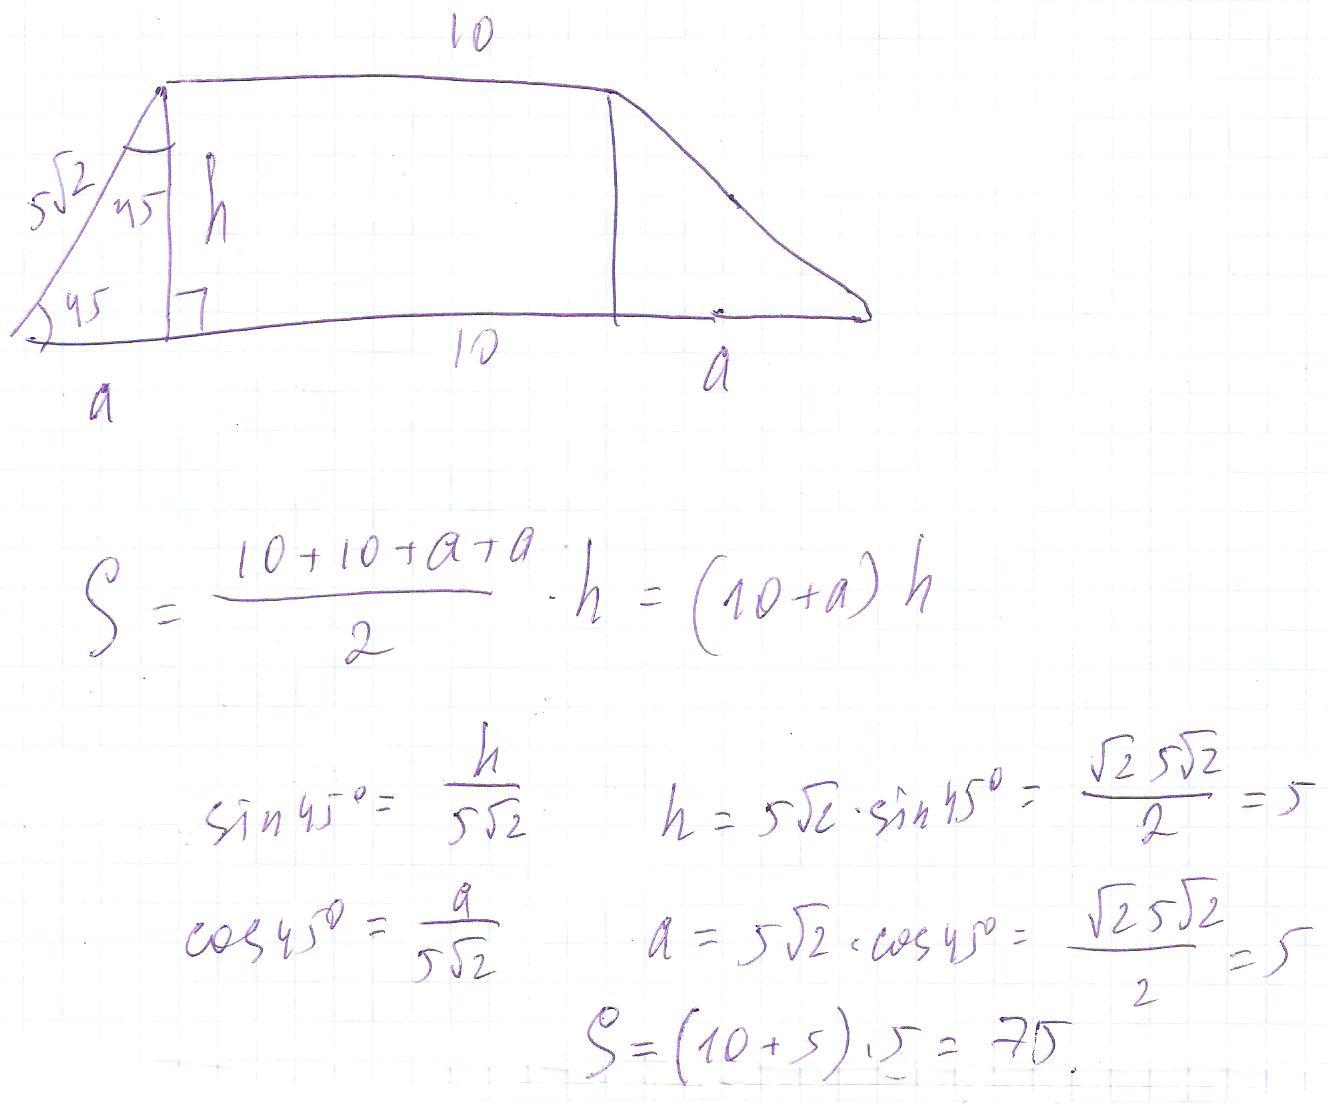 10
5√2
45
h
45
10
a
a
S = (10+10+a+a)/2 · h = (10+a) h
sin45° = h/5√2   h = 5√2 · sin45° = √2 5√2/2 = 5
cos45° = a/5√2   a = 5√2 · cos45° = √2 5√2/2 = 5
S = (10+5) · 5 = 75.